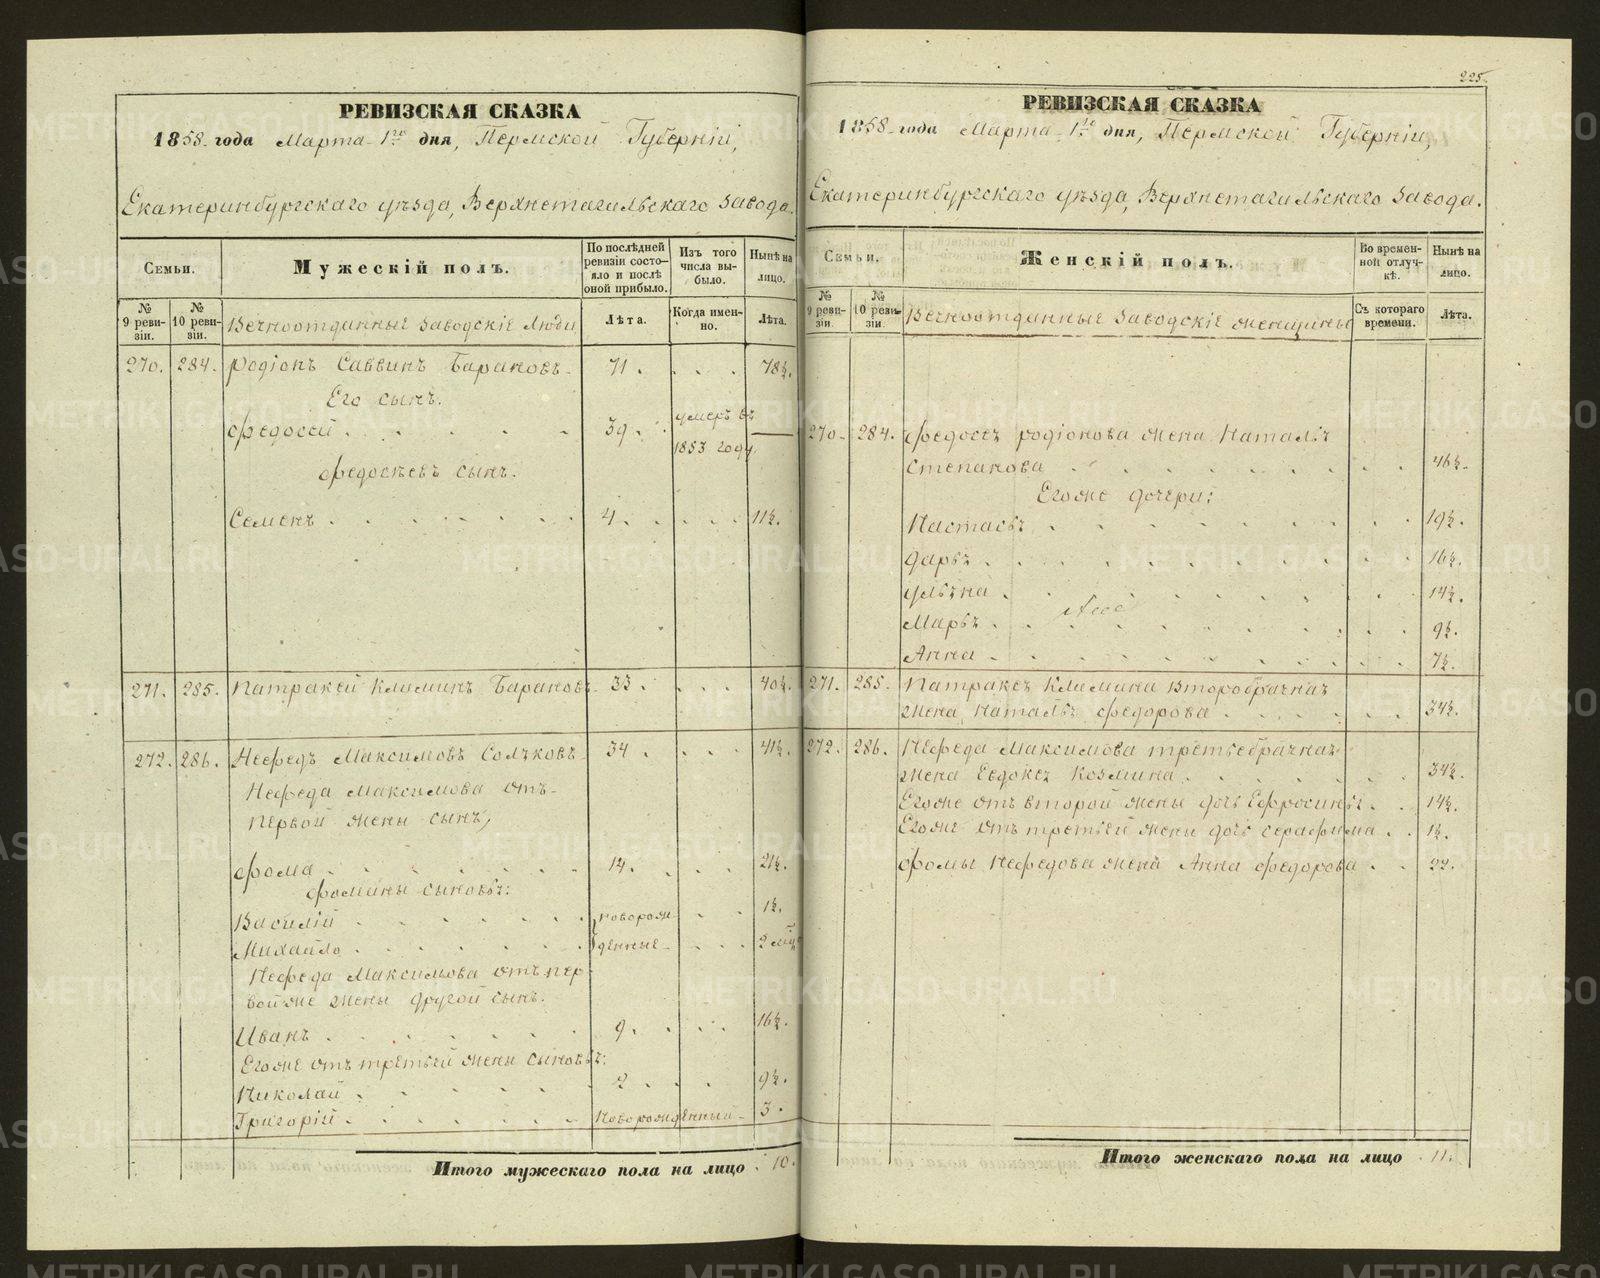 РЕВИЗСКАЯ СКАЗКА
1858 года Марта 1го дня, Пермской Губерніи,
Екатеринбургскаго уѣзда, Верхнетагильскаго завода.
Семьи.
Мужескій полъ.
По послѣдней ревизіи состояло и послѣ оной прибыло.
Изъ того числа выбыло.
Нынѣ на лицо.
№ 9 ревизіи.
№ 10 ревизіи.
Вечноотданные заводскіе люди
Лѣта.
Когда именно.
Лѣта.
270. 284. Родіонъ Саввинъ Барановъ 71. 78½.
Его сынъ.
Федосей 39. умеръ въ 1853 году —
Федосѣевъ сынъ.
Семенъ 4. 11½.
271. 285. Патракей Климинъ Барановъ 33. 40½.
272. 286. Нефедъ Максимовъ Солъковъ 34. 41½.
Нефеда Максимова отъ
первой жены сынъ,
Фома 14. 21½.
Фомины сыновья:
Василій новорож- 1½.
Михайло денные 2 мѣц
Нефеда Максимова отъ пер-
вой же жены другой сынъ.
Иванъ 9. 16½.
Его же отъ третьей жены сыновья:
Николай 2. 9½.
Григорій Новорожденный 3.
Итого мужескаго пола на лицо 10.
225.
РЕВИЗСКАЯ СКАЗКА
1858 года Марта 1го дня, Пермской Губерніи,
Екатеринбургскаго уѣзда, Верхнетагильскаго завода.
Семьи.
Женскій полъ.
Во временной отлучкѣ.
Нынѣ на лицо.
№ 9 ревизіи.
№ 10 ревизіи.
Вечноотданные заводскіе женщины
Съ котораго времени.
Лѣта.
270. 284. Федосея Родіонова жена Наталья
Степанова 46½.
Его же дочери:
Настасья 19½.
Дарья 16½.
Ульяна 14½.
Марья 9½.
Анна 7½.
271. 285. Патракея Климина второбрачная
жена, Наталья Федорова 34½.
272. 286. Нефеда Максимова третьебрачная
жена Евдокея Козмина 34½.
Его же отъ второй жены дочь Ефросинья 14½.
Его же отъ третьей жены дочь Серафима 1½.
Фомы Нефедова жена Анна Федорова 22.
Итого женскаго пола на лицо 11.
METRIKI.GASO-URAL.RU